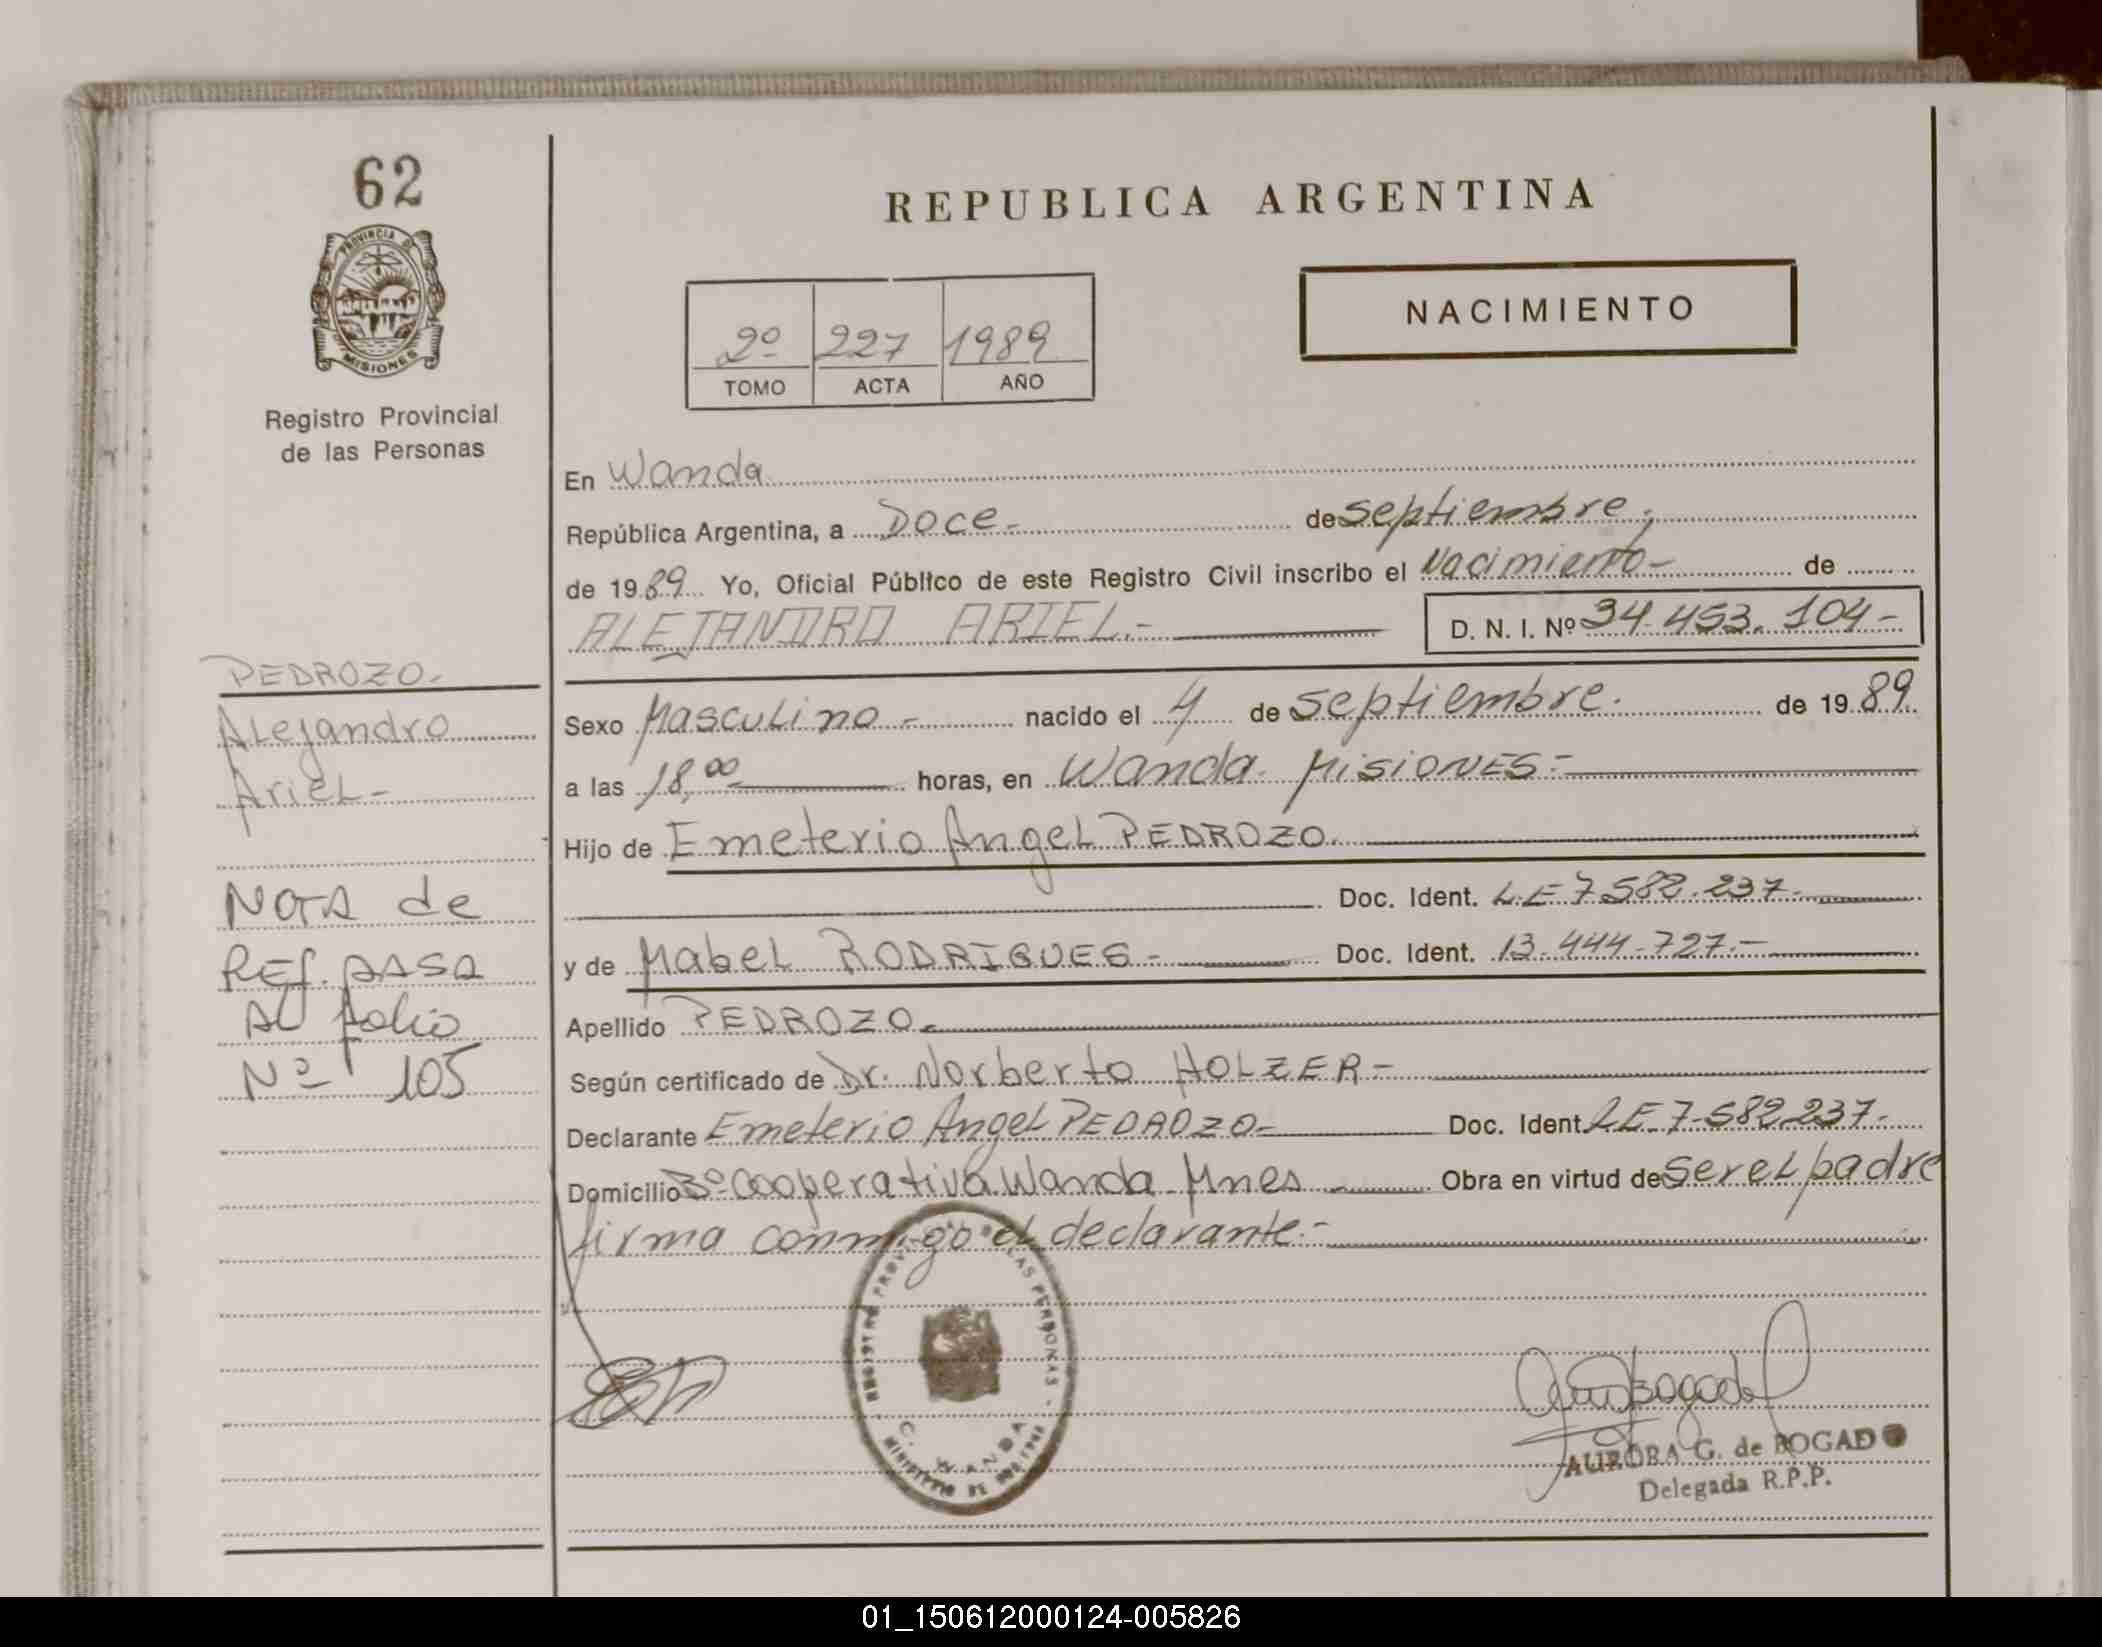 62
PROVINCIA DE
MISIONES
Registro Provincial
de las Personas
PEDROZO.
Alejandro
Ariel-
NOTA de
REf. PASA
AL folio
Nº 105
REPUBLICA ARGENTINA
2º 227 1989
TOMO ACTA AÑO
NACIMIENTO
En Wanda
República Argentina, a Doce.- de septiembre,
de 1989 Yo, Oficial Público de este Registro Civil inscribo el Nacimiento- de
ALEJANDRO ARIEL.- D. N. I. Nº 34.453.104-
Sexo Masculino.- nacido el 4 de septiembre. de 1989
a las 18,00 horas, en Wanda. MISIONES.-
Hijo de Emeterio Angel PEDROZO.
Doc. Ident. L.E 7.582.237.-
y de Mabel RODRIGUES- Doc. Ident. 13.444.727.-
Apellido PEDROZO.
Según certificado de Dr. Norberto HOLZER-
Declarante Emeterio Angel PEDROZO- Doc. Ident. L.E. 7.582.237.-
Domicilio Bº Cooperativa Wanda Mnes Obra en virtud de ser el padre
firma conmigo el declarante.-
REGISTRO PROVINCIAL DE LAS PERSONAS
C. WANDA
MINISTERIO DE GOBIERNO
AURORA G. de BOGADO
Delegada R.P.P.
01_150612000124-005826